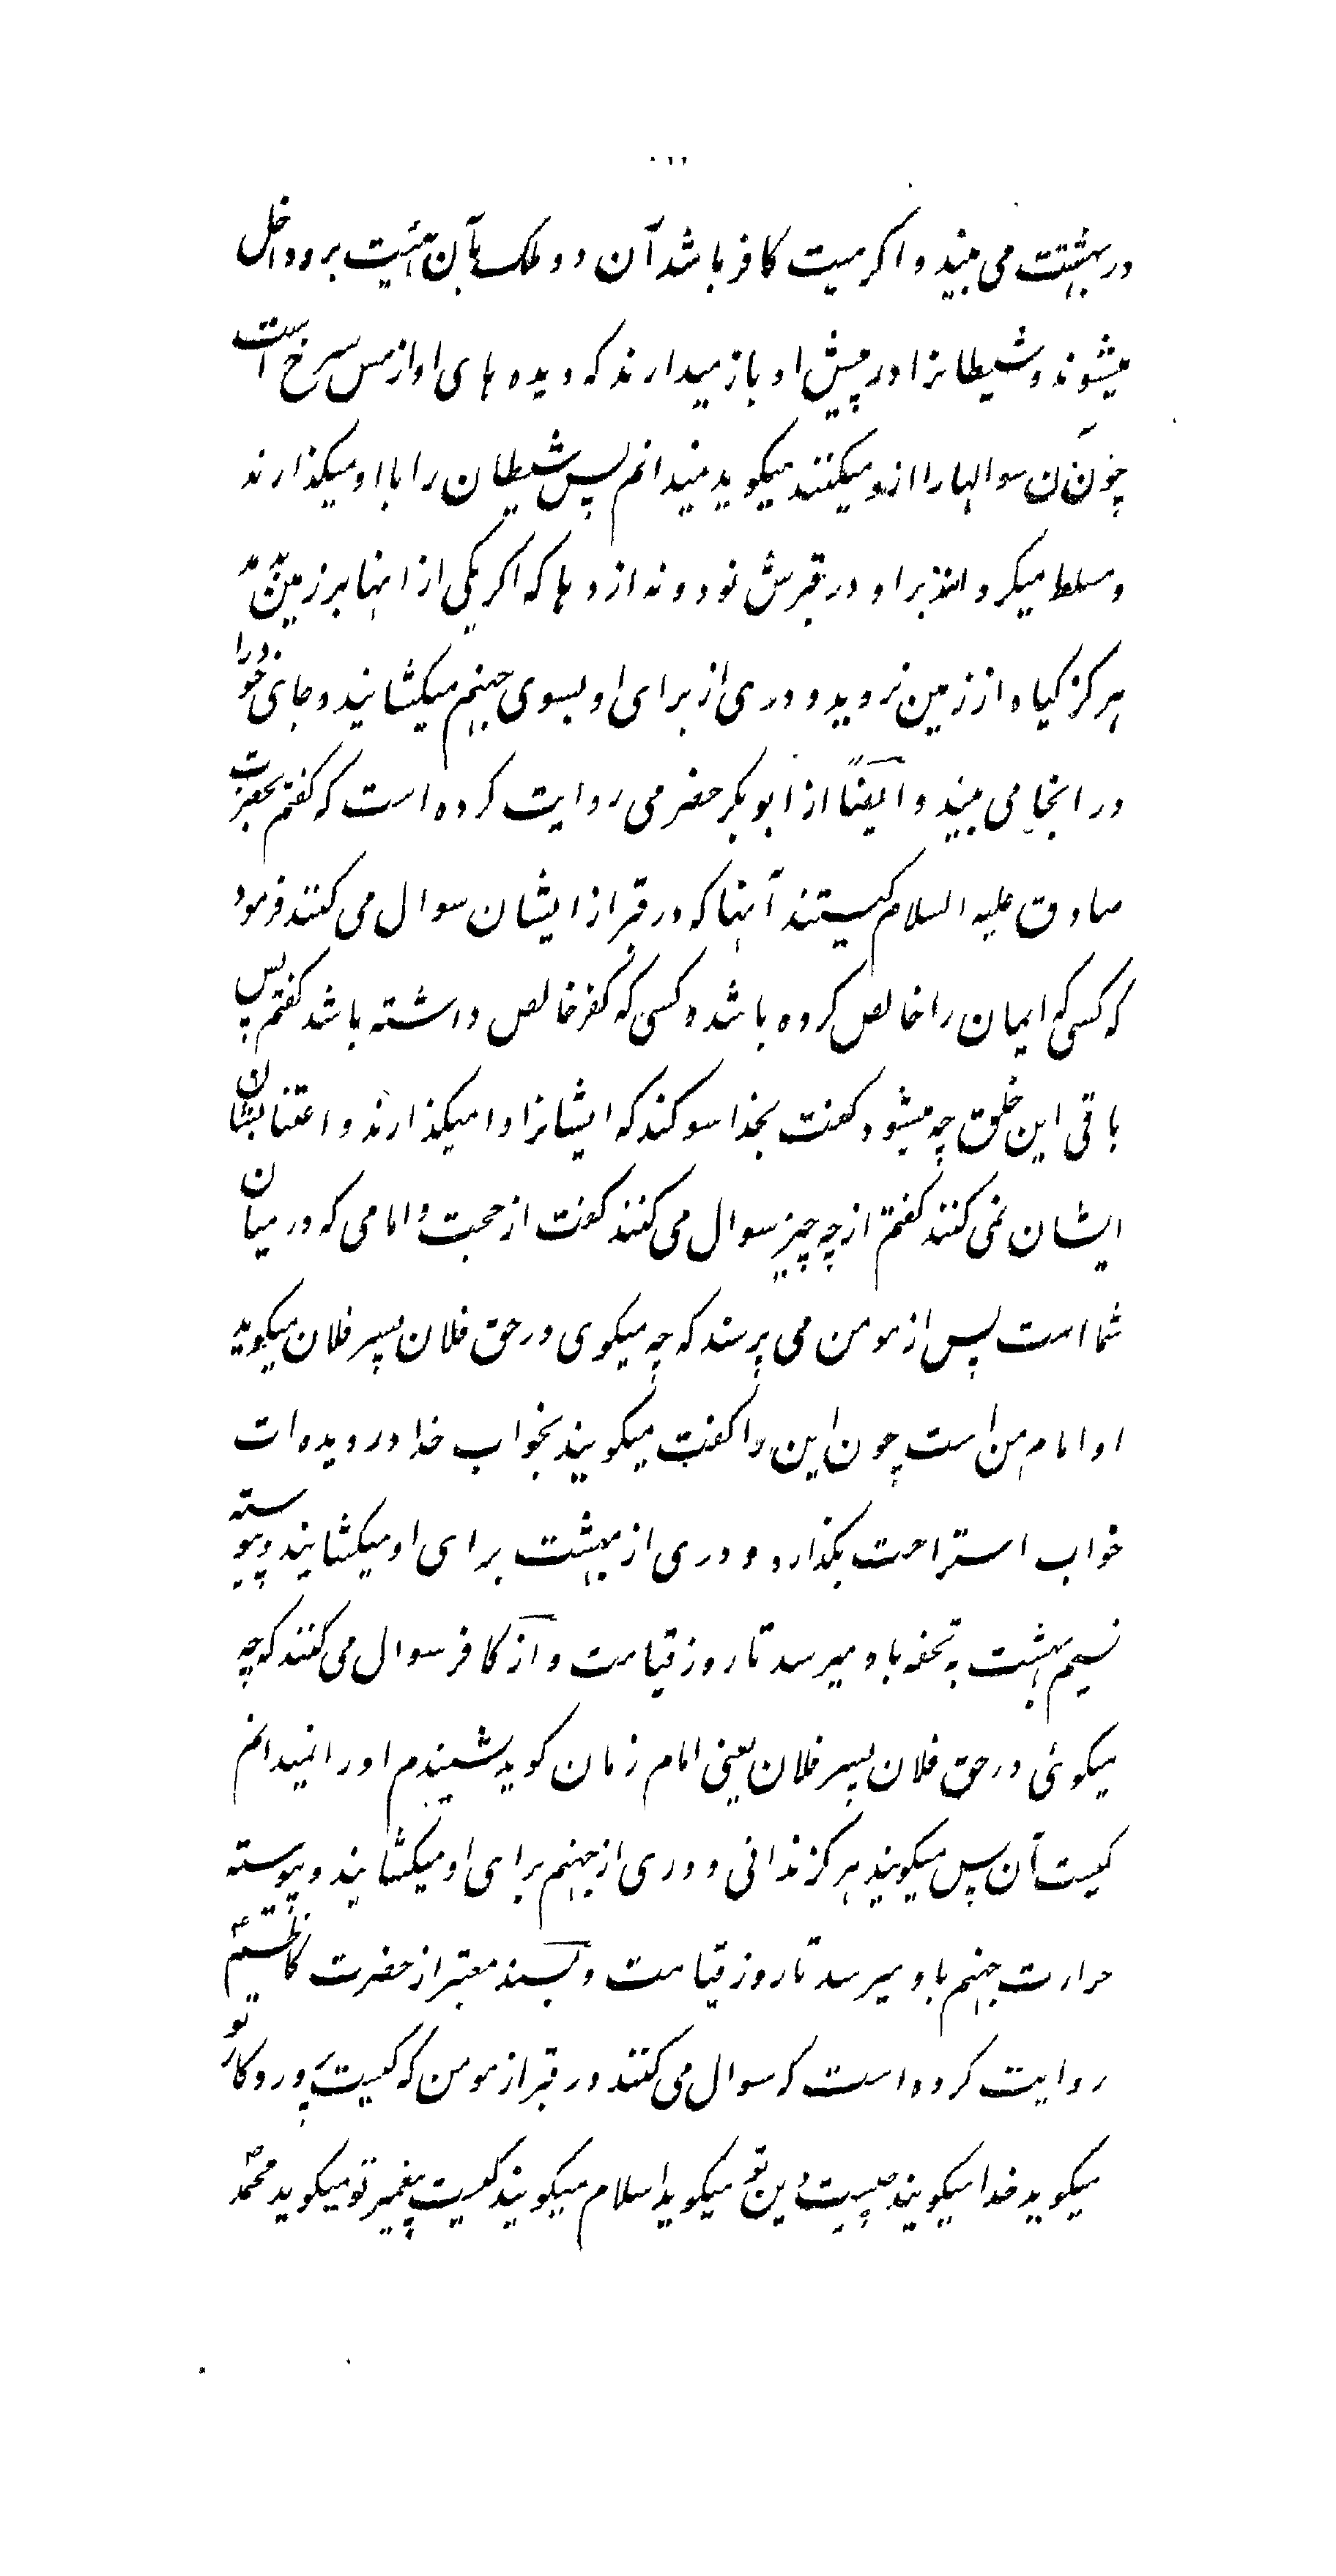 در بهشت می بیند و اکر میت کافر باشد آن دو ملک بآن هیئت برو داخل
میشوند و شیطانرا در پیش او باز میدارند که دیده های او از مس سرخ است
چون آن سوالها را ازو میکنند میکوید نمیدانم پس شیطان را با او میکذارند
و مسلط میکرداند بر او در قبرش نود و نه اژدها که اکر یکی از انها بر زمین دمد
هرکز کیاه از زمین نروید و دری از برای او بسوی جهنم میکشایند و جای خود را
در انجا می بیند و ایضاً از ابوبکر حضرمی روایت کرده است که کفتم بحضرت
صادق علیه السلام کیستند آنها که در قبر از ایشان سوال می کنند فرمود
که کسی که ایمان را خالص کرده باشد و کسی که کفر خالص داشته باشد کفتم پس
باقی این خلق چه میشود کفت بخدا سوکند که ایشانرا وا میکذارند و اعتنا بشان
ایشان نمی کنند کفتم از چه چیز سوال می کنند کفت از حجت و امامی که در میان
شما است پس از مومن می پرسند که چه میکوی در حق فلان پسر فلان میکوید
او امام من است چون این را کفت میکویند بخواب خدا در دیده ات
خواب استراحت بکذارد و دری از بهشت برای او میکشایند و پیوسته
نسیم بهشت به تحفه باو میرسد تا روز قیامت و از کافر سوال می کنند که چه
میکوئی در حق فلان پسر فلان یعنی امام زمان کوید شنیدم او را نمیدانم
کیست آن پس میکویند هرکز ندانی و دری از جهنم برای او میکشایند و پیوسته
حرارت جهنم باو میرسد تا روز قیامت و بسند معتبر از حضرت کاظمؑ
روایت کرده است که سوال می کنند در قبر از مومن که کیست پروردکار تو
میکوید خدا میکویند چیست دین تو میکوید اسلام میکویند کیست پیغمبر تو میکوید محمدؐ